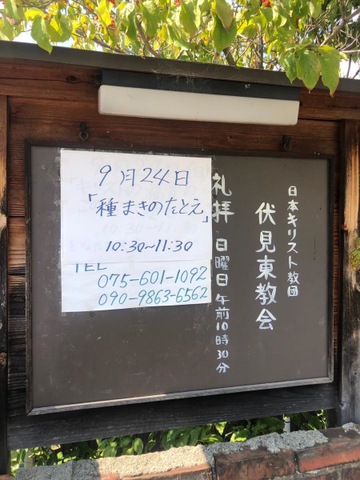 日本キリスト教団
伏見東教会
礼拝 日曜日午前10時30分
9月24日
「種まきのたとえ」
10:30~11:30
TEL
075-601-1092
090-9863-6562